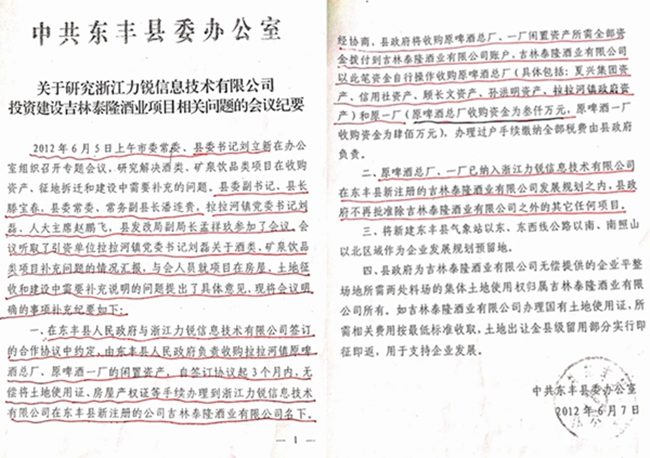 中共东丰县委办公室
关于研究浙江力锐信息技术有限公司
投资建设吉林泰隆酒业项目相关问题的会议纪要
2012年6月5日上午市委常委、县委书记刘立新在办公
室组织召开专题会议，研究解决酒类、矿泉饮品类项目在收购
资产、征地拆迁和建设中需要补充的问题。县委副书记、县长
滕宝春、县委常委、常务副县长潘连贵，拉拉河镇党委书记刘
磊、人大主席赵鹏飞，县发改局副局长孟祥玖参加了会议。会
议听取了引资单位拉拉河镇党委书记刘磊关于酒类、矿泉饮品
类项目补充问题的情况汇报，与会人员就项目在房屋，土地征
收和建设中需要补充说明的问题提出了具体意见，现将会议明
确的事项补充纪要如下：
一、在东丰县人民政府与浙江力锐信息技术有限公司签订
的合作协议中约定，由东丰县人民政府负责收购拉拉河镇原啤
酒总厂、原啤酒一厂的闲置资产，自签订协议起3个月内，无
偿将土地使用证、房屋产权证等手续办理到浙江力锐信息技术
有限公司在东丰县新注册的公司吉林泰隆酒业有限公司名下。
— 1
经协商，县政府将收购原啤酒总厂、一厂闲置资产所需全部资
金拨付到吉林泰隆酒业有限公司账户，吉林泰隆酒业有限公司
以此笔资金自行操作收购原啤酒总厂（具体包括：复兴集团资
产、信用社资产、顾长文资产、孙洪明资产、拉拉河镇政府资
产）和原一厂（原啤酒总厂收购资金为叁仟万元，原啤酒一厂
收购资金为肆佰万元），办理过户手续缴纳全部税费由县政府
负责。
二、原啤酒总厂、一厂已纳入浙江力锐信息技术有限公司
在东丰县新注册的吉林泰隆酒业有限公司发展规划之内，县政
府不再批准除吉林泰隆酒业有限公司之外的其它任何项目。
三、将新建东丰县气象站以东、东西线公路以南、南照山
以北区域作为企业发展规划预留地。
四、县政府为吉林泰隆酒业有限公司无偿提供的企业平整
场地所需两处料场的集体土地使用权归属吉林泰隆酒业有限
公司所有。如吉林泰隆酒业有限公司办理国有土地使用证，所
需相关费用按最低标准收取，土地出让金县级留用部分实行即
征即返，用于支持企业发展。
中共东丰县委办公室
2012年6月7日